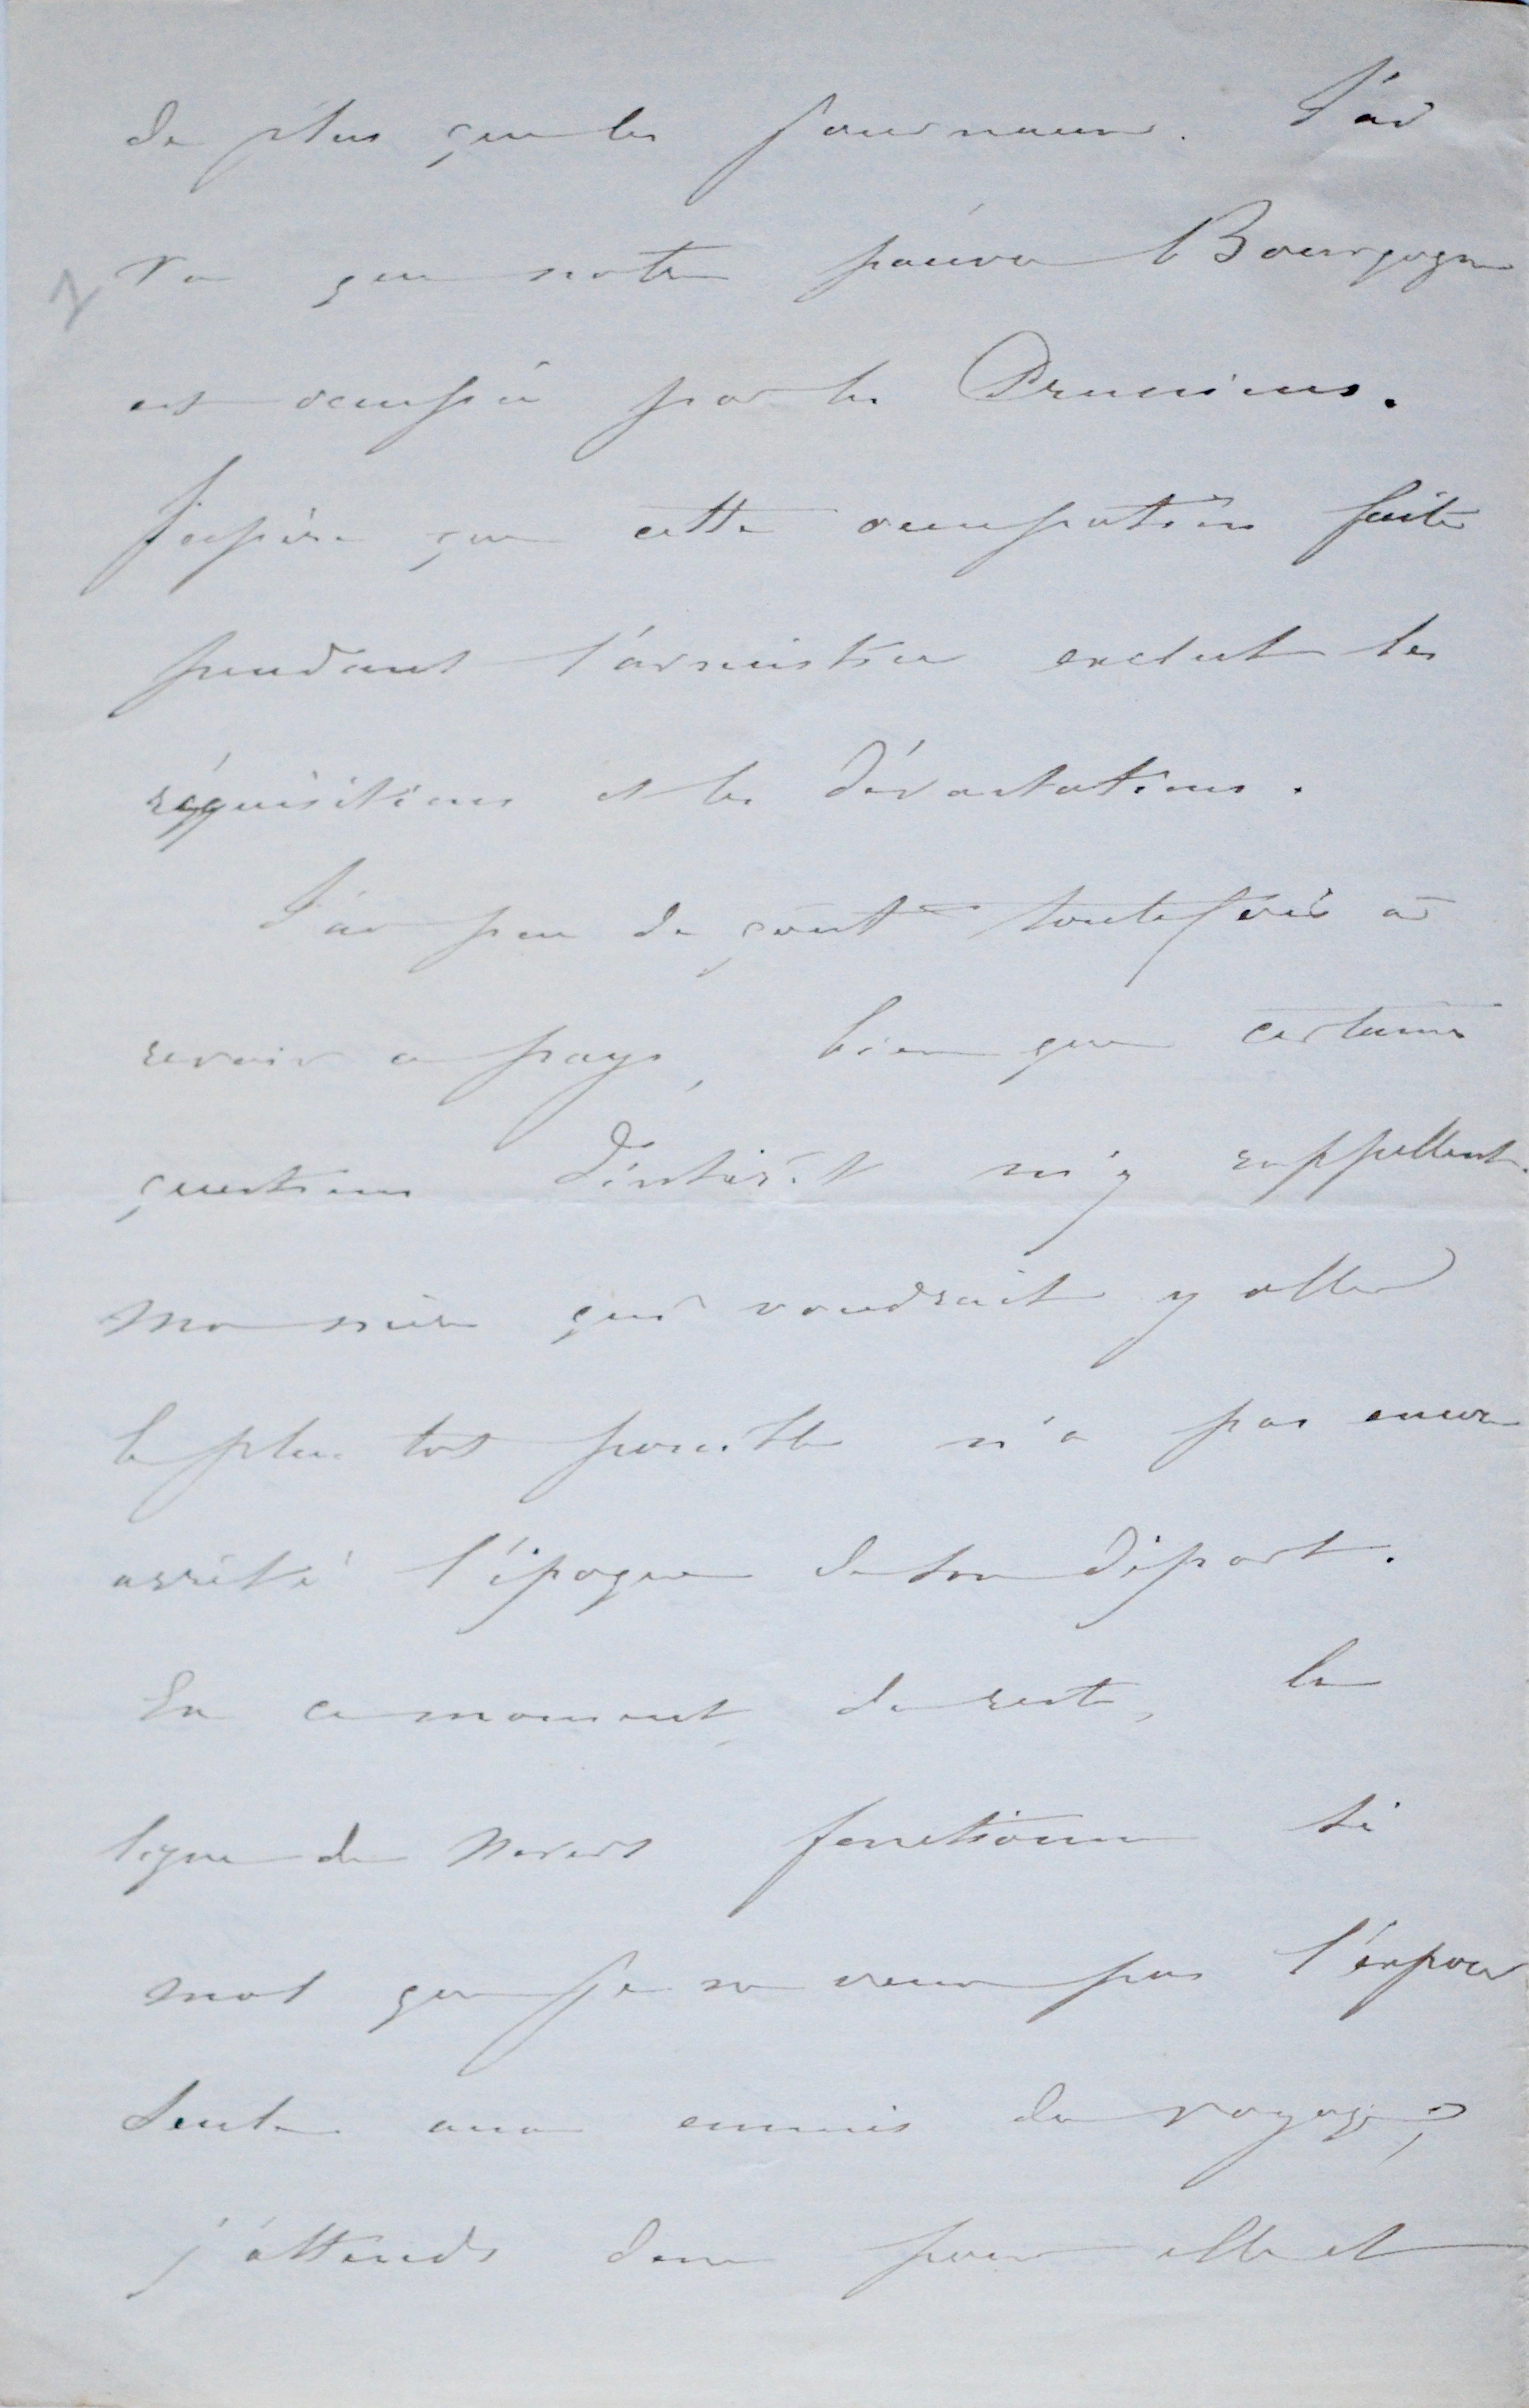 de plus que les journaux. J'ai
vu que notre pauvre Bourgogne
est occupée par les Prussiens.
J'espère que cette occupation faite
pendant l'armistice exclut les
réquisitions et les dévastations.
J'ai peu de goût toutefois à
revoir ce pays, bien que certaines
questions d'intérêt m'y rappellent.
Ma mère qui voudrait y aller
le plus tôt possible n'a pas encore
arrêté l'époque de son départ.
En ce moment du reste, la
ligne de Nevers fonctionne si
mal que je ne veux pas l'exposer
seule aux ennuis du voyage;
j'attends donc pour elle et